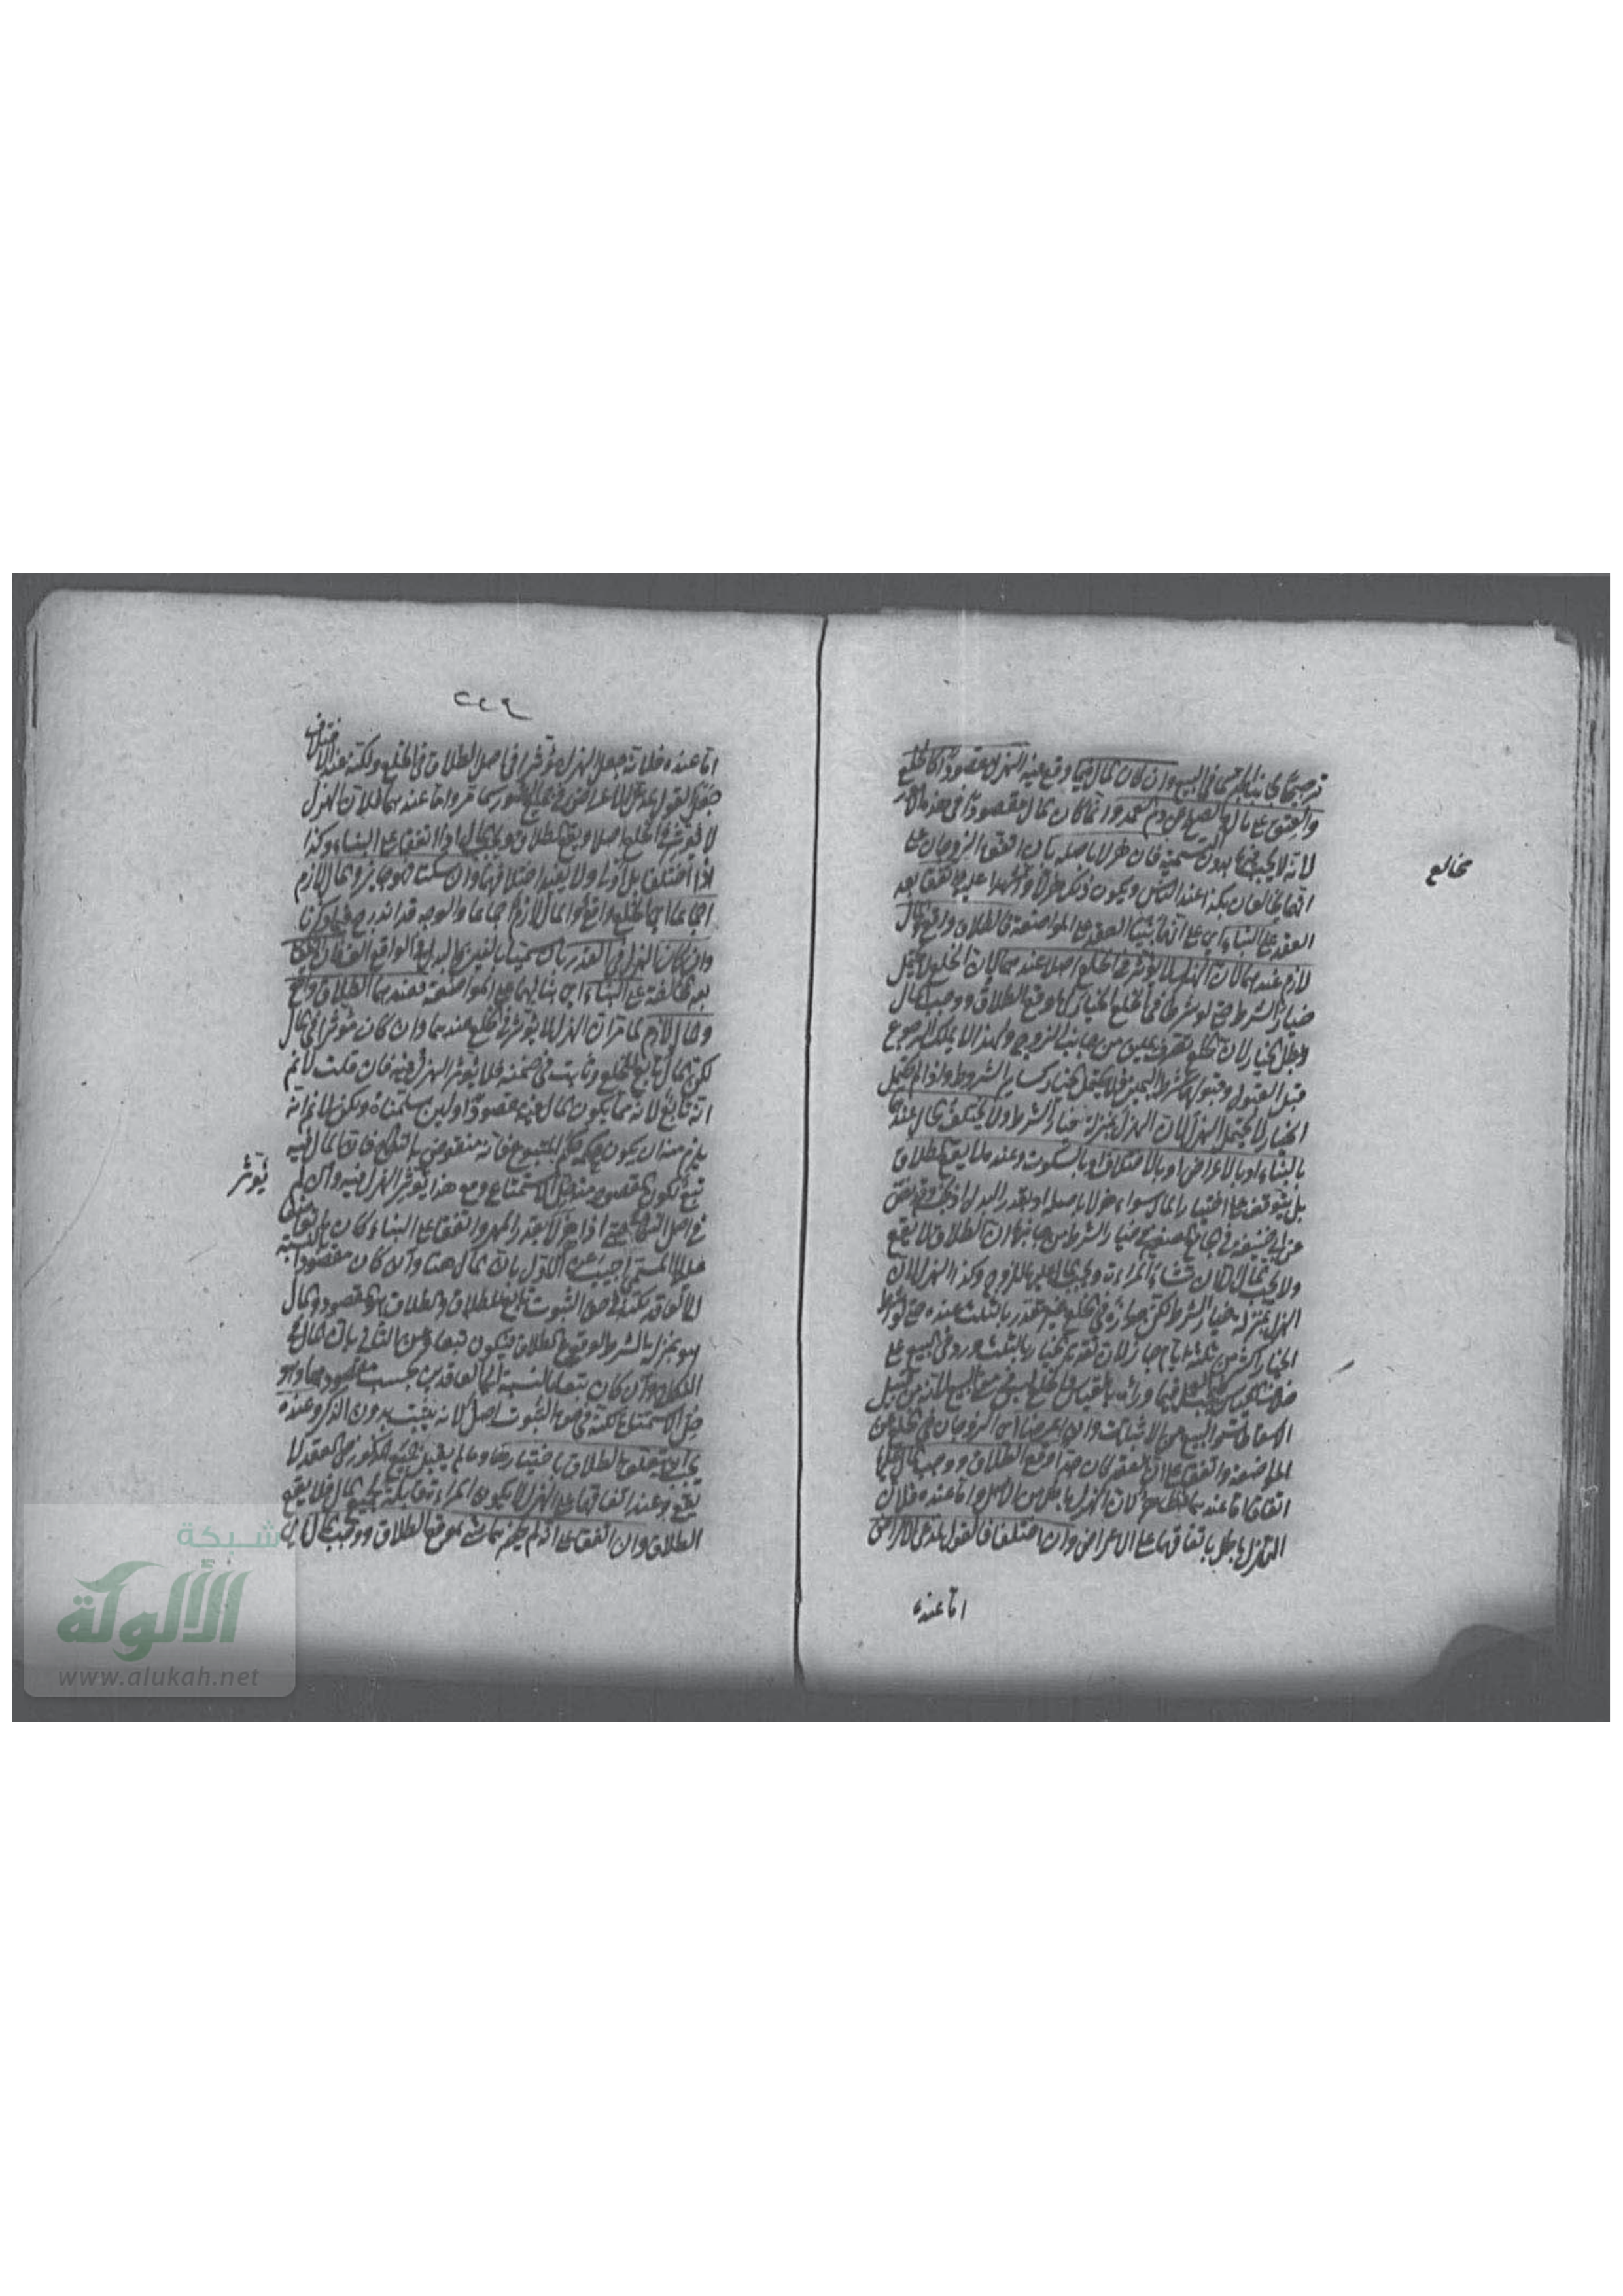 ترجيحًا لجانب الجد كما في البيع وان كان المال فيما وقع فيه الهزل مقصودًا كالخلع
والعتق على مال والصلح عن دم العمد وانما كان المال مقصودًا في هذه الامور
لانه لا يجب فيها بدون التسمية فان هزلا باصله بان اتفق الزوجان على
انهما يخالعان بكذا عند الناس ويكون ذلك هزلًا واشهدا عليه واتفقا بعد
العقد على البناء اي على انهما بنيا العقد على المواضعة فالطلاق واقع والمال
لازم عندهما لان الهزل لا يؤثر في الخلع اصلا عندهما لان الخلع لا يحتمل
خيار الشرط حتى لو شرطا في الخلع الخيار لها وقع الطلاق ووجب المال
وبطل الخيار لان الخلع تصرف يمين من جانب الزوج ولهذا لا يملك الرجوع
قبل القبول وقبولها شرط اليمين فلا يحتمل الخيار كسائر الشروط واذا لم يحتمل
الخيار لا يحتمل الهزل لان الهزل بمنزلة خيار الشرط ولا يختلف الحال عندهما
بالبناء او بالاعراض او بالاختلاف او بالسكوت وعنده لا يقع الطلاق
بل يتوقف على اختيار المال سواء هزلا باصله او بقدر البدل او جنسه وقد نص
عن ابي حنيفة في الجامع الصغير في خيار الشرط من جانبها ان الطلاق لا يقع
ولا يجب المال الا ان تشاء المراءة ويجب المال عليها للزوج وكذا الهزل لان
الهزل بمنزلة خيار الشرط لكن جوازه في الخلع غير مقدر بالثلث عنده حتى لو شرط
الخيار اكثر من ثلثة ايام جاز لان تقدير الخيار بالثلث ورد في البيع على
خلاف القياس فيما وراءه بالقياس والخلع ليس في معنى البيع لانه من قبيل
الاسقاطات والبيع من الاثباتات وان اعرضا اي الزوجان في الخلع عن
المواضعة واتفقا على ان العقد كان جدا وقع الطلاق ووجب المال عليها
اتفاقا اما عندهما فظاهر لان الهزل باطل من الاصل واما عنده فلان
الهزل باطل باتفاقهما على الاعراض وان اختلفا فالقول لمدعي الاعراض
اما عنده
يخالع
٢٤٩
اما عنده فلانه جعل الهزل مؤثرا في اصل الطلاق في الخلع ولكنه عند الاختلاف
جعل القول لمدعي الاعراض في جميع الصور كما مر واما عندهما فلان الهزل
لا يؤثر في الخلع اصلا ويقع الطلاق ويجب المال اذا اتفقا على البناء وكذا
اذا اختلفا بل اولى ولا يفيد اختلافهما وان سكتا فهو جائز والمال لازم
اجماعا اي الخلع واقع والمال لازم اجماعا والوجه قد اندرج فيما ذكرنا
وان كان الهزل في القدر بان سميا الفين والبدل في الواقع الف فان اتفقا
بعد المخالفة على البناء اي بنائهما على المواضعة فعندهما الطلاق واقع
والمال لازم لما مر ان الهزل لا يؤثر في الخلع عندهما وان كان مؤثرا في المال
لكن المال تابع للخلع وثابت في ضمنه فلا يؤثر الهزل فيه فان قلت لا نم
انه تابع لانه مما يكون المال فيه مقصودًا ولئن سلمناه ولكن لا نم انه
يلزم منه ان يكون حكمه حكم المتبوع فانه منقوض بالنكاح فان المال فيه
تبع لكون المقصود منه حل الاستمتاع ومع هذا يؤثر الهزل فيه وان لم
في اصل النكاح حتى اذا هزلا بقدر المهر واتفقا على البناء كان المهر ما تواضعا
عليه لا المسمى اجيب عن الاول بان المال هنا وان كان مقصودا بالنسبة
الى العاقد لكنه في حق الثبوت تابع للطلاق والطلاق هو المقصود والمال
هو بمنزلة الشرط لوقوع الطلاق فيكون تبعا وعن الثاني بان المال في
النكاح وان كان تبعا بالنسبة الى العاقدين بحسب مقصودهما وهو
حل الاستمتاع لكنه في حق الثبوت اصل لانه يثبت بدون الذكر وعنده
يجب ان يتعلق الطلاق باختيارها وما لم يقبل جميع المذكور في العقد لا
يقع وعند اتفاقهما على الهزل لا يكون المراءة قابلة لجميع المال فلا يقع
الطلاق وان اتفقا على انه لم يحضرهما شيء وقع الطلاق ووجب المال
يؤثر
شبكة
الألوكة
www.alukah.net